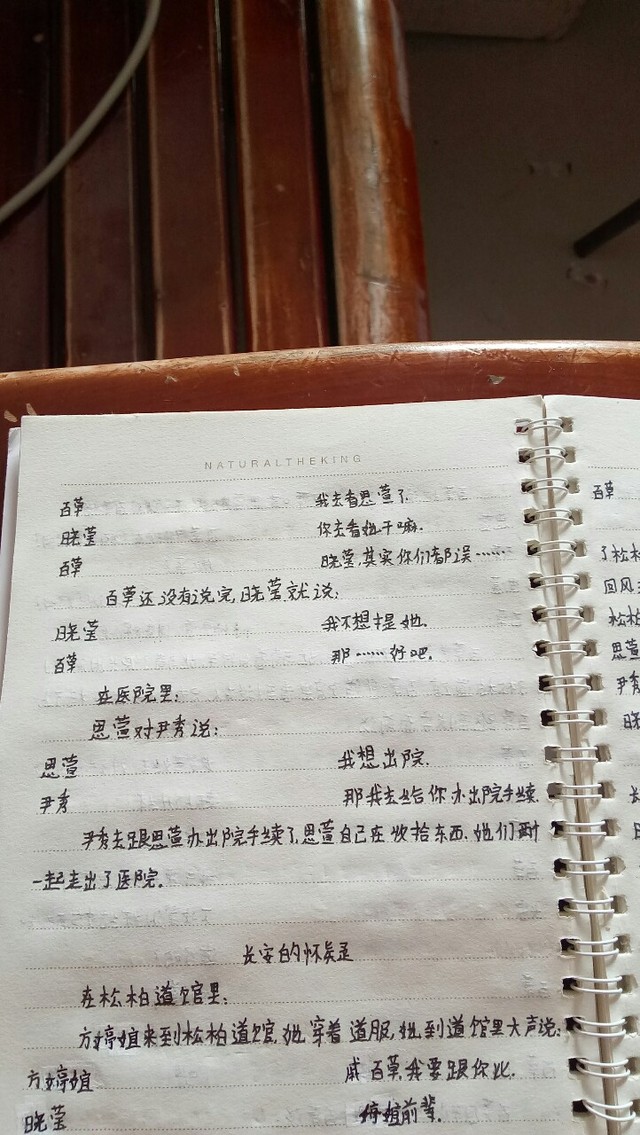 NATURALTHEKING
百草 我去看思萱了.
晓莹 你去看她干嘛.
百草 晓莹,其实你们都误……
百草还没有说完,晓莹就说:
晓莹 我不想提她.
百草 那……好吧.
在医院里:
思萱对尹秀说:
思萱 我想出院.
尹秀 那我去给你办出院手续.
尹秀去跟思萱办出院手续了,思萱自己在收拾东西.她们两
一起走出了医院.
长安的怀疑
在松柏道馆里:
方婷姐来到松柏道馆,她穿着道服,她到道馆里大声说:
方婷姐 戚百草,我要跟你比.
晓莹 婷姐前辈.
百草
了松柏
回风
松柏
思萱
尹秀
晓
长